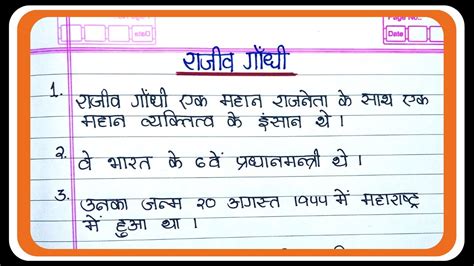 Page No.:
Date
राजीव गाँधी
1. राजीव गाँधी एक महान राजनेता के साथ एक
महान व्यक्तित्व के इंसान थे ।
2. वे भारत के 6वें प्रधानमन्त्री थे ।
3. उनका जन्म २० अगस्त १९४४ में महाराष्ट्र
में हुआ था ।